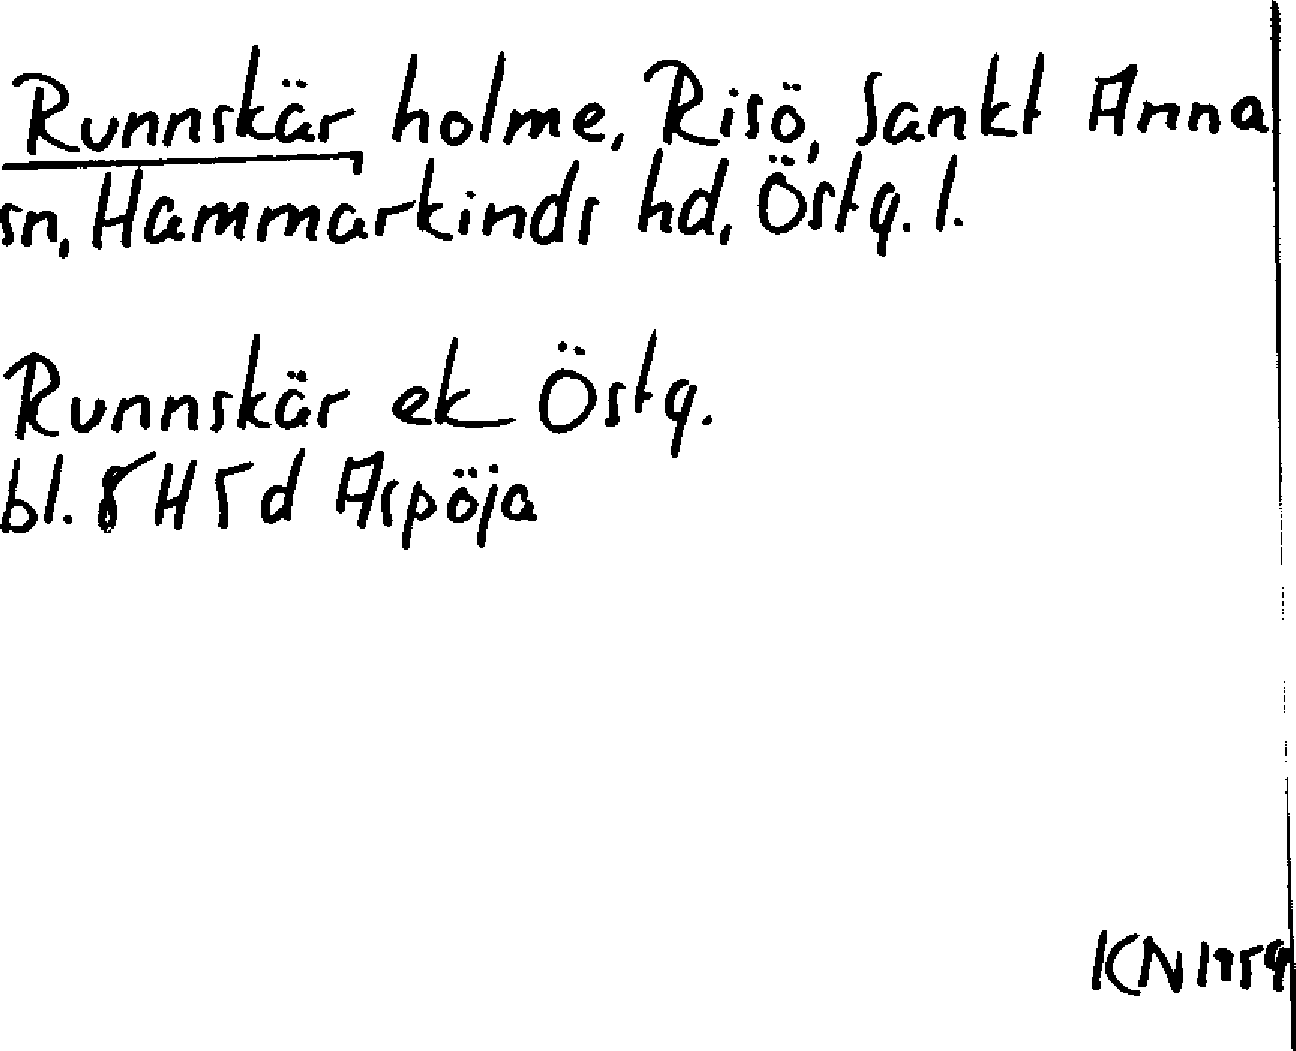 Runnskär, holme, Risö, Sankt Anna
sn, Hammarkinds hd, Östg. l.
Runnskär ek Östg.
bl. 8H5d Aspöja
KN 1959